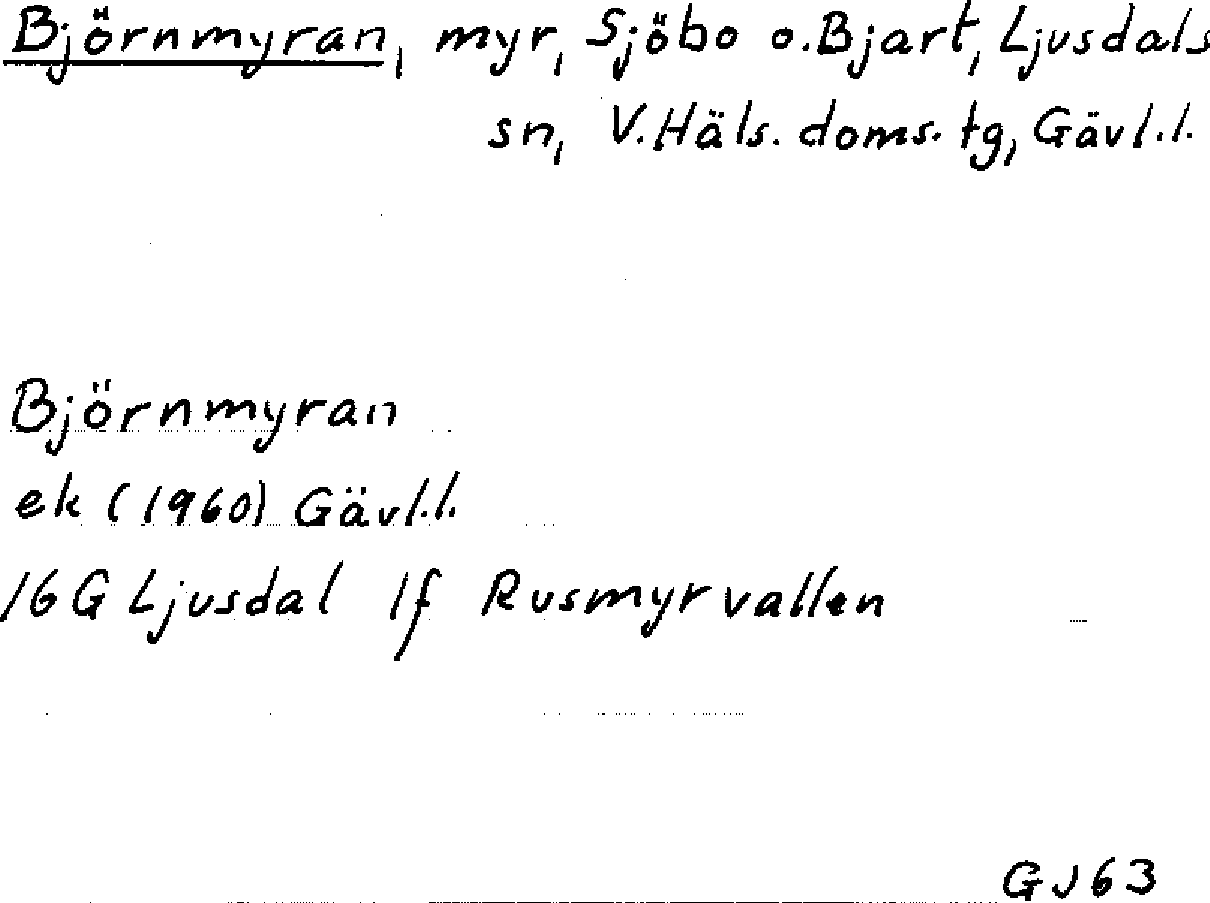 Björnmyran, myr, Sjöbo o.Bjart, Ljusdals
sn, V.Häls. doms. tg, Gävl.l.
Björnmyran
ek (1960) Gävl.l.
16G Ljusdal 1f Rusmyrvallen
GJ63